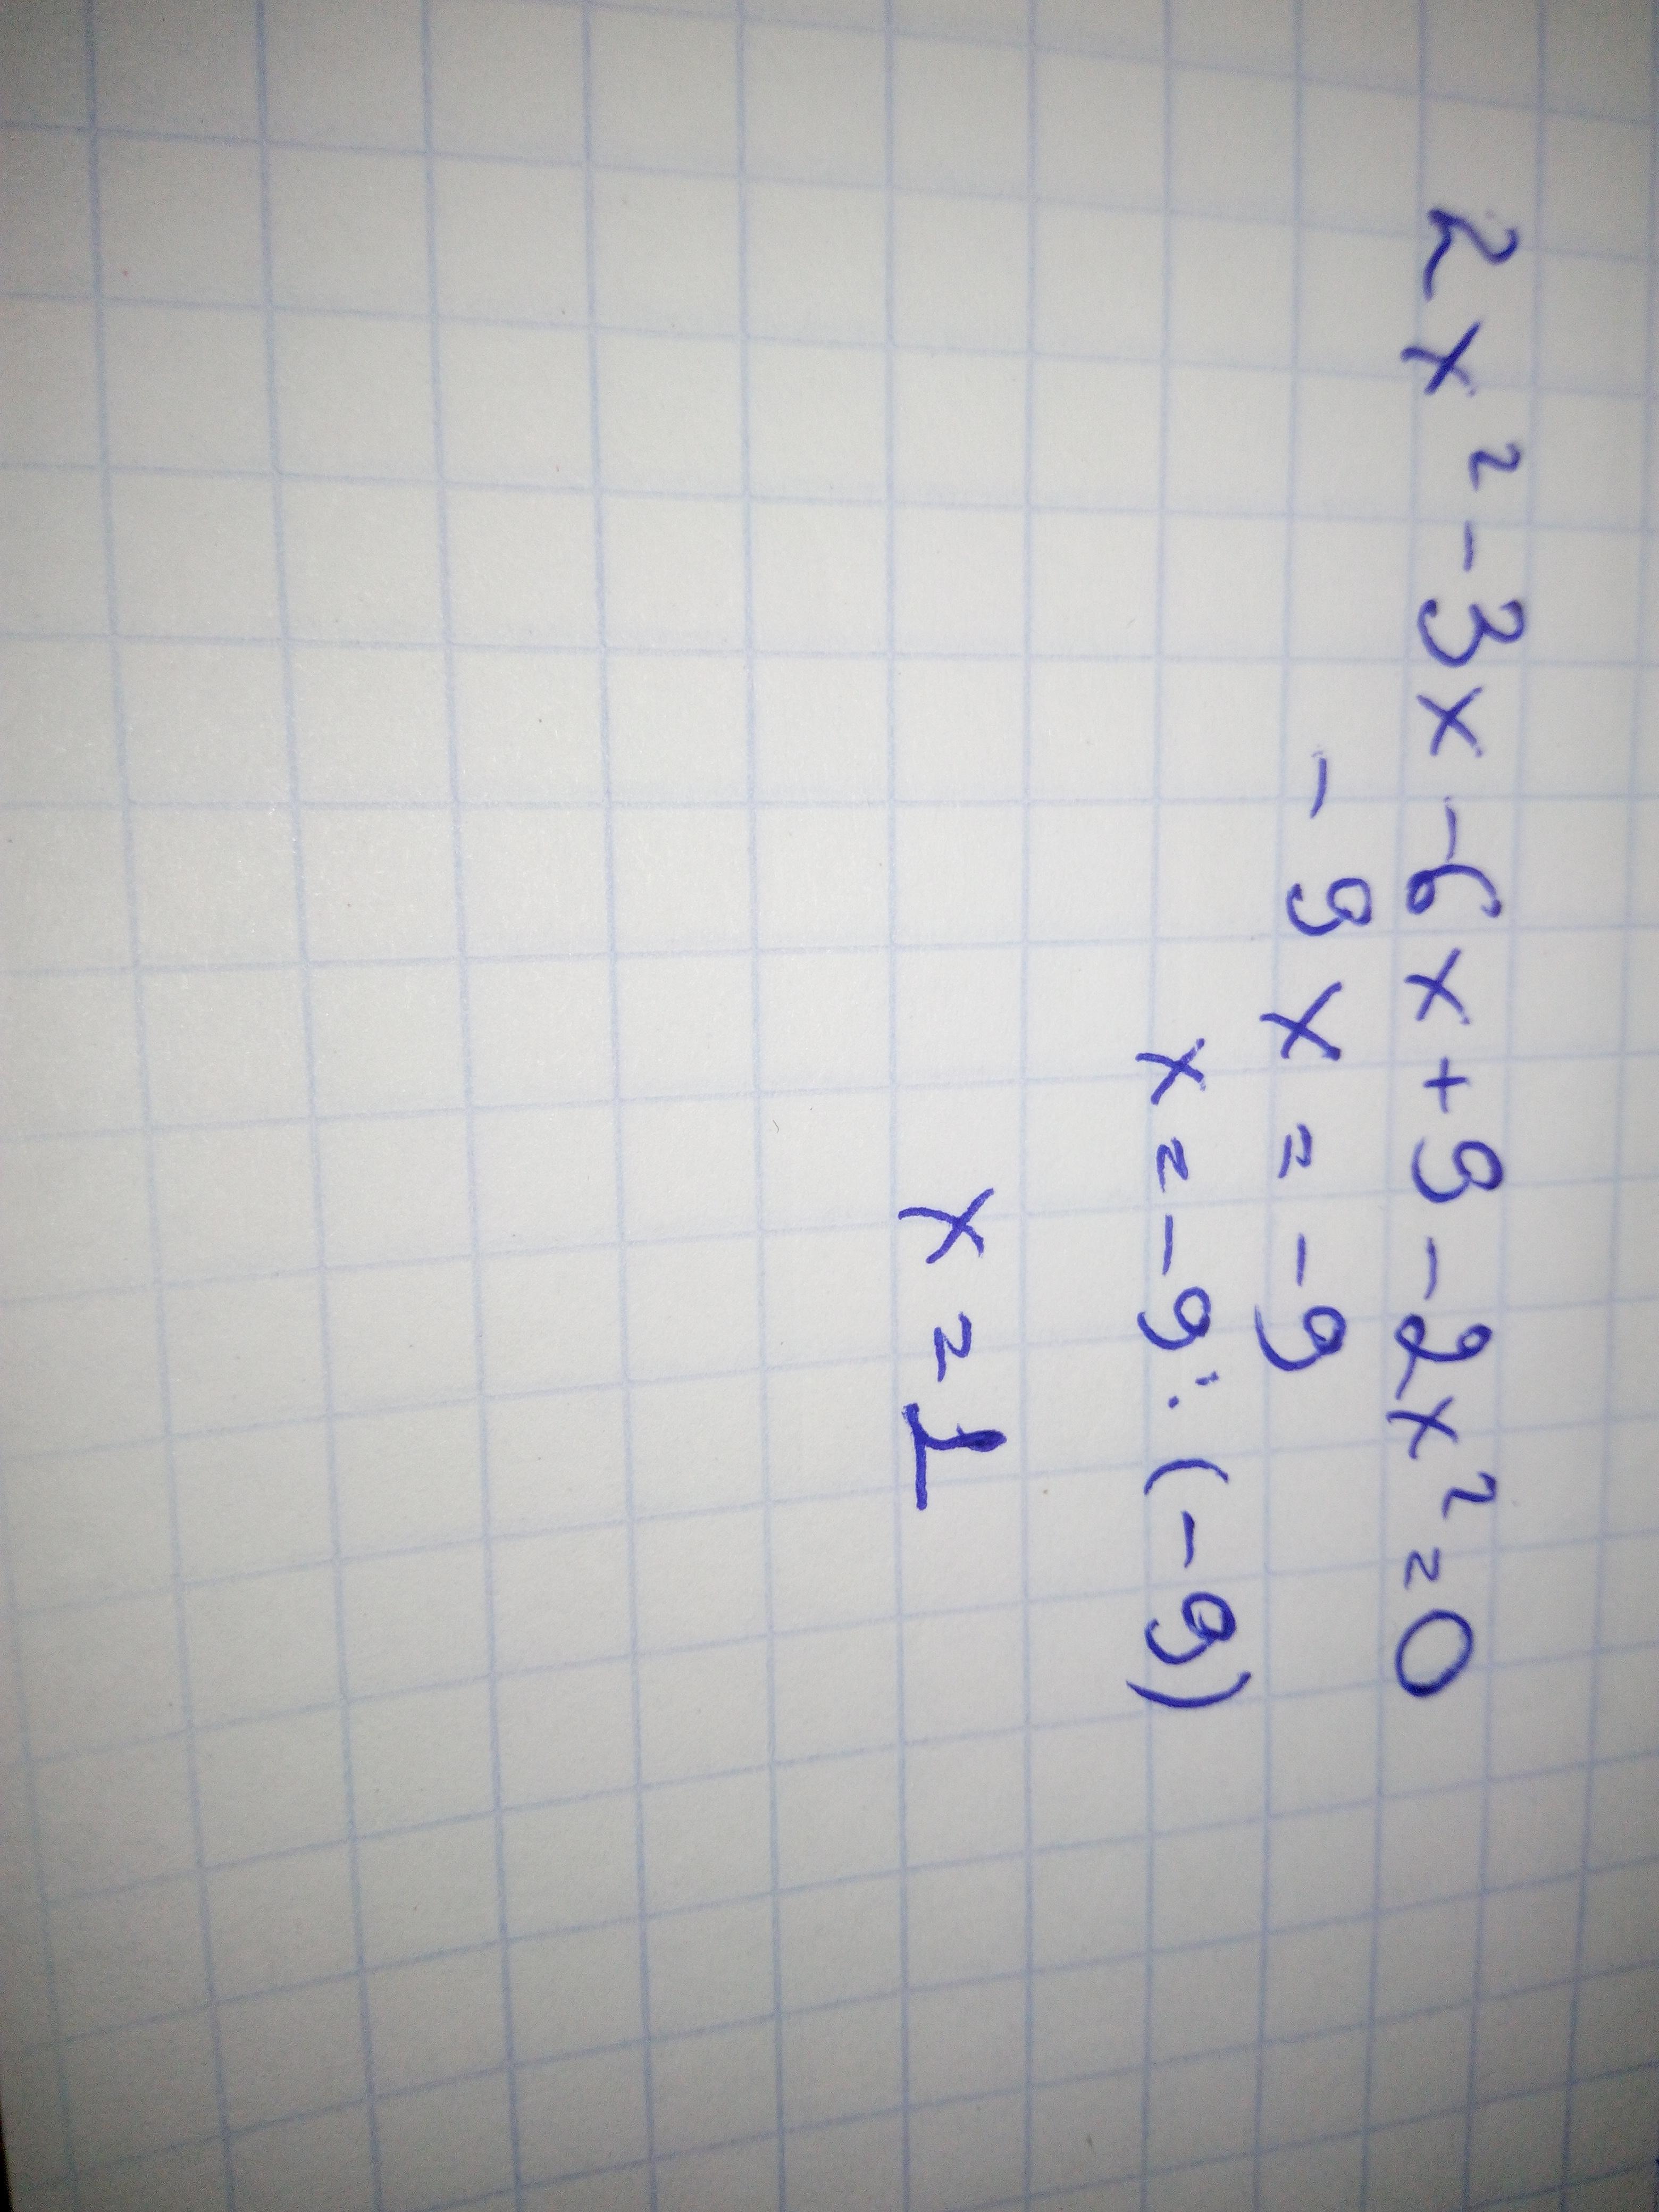 2x² - 3x - 6x + 9 - 2x² = 0
- 9x = -9
x = -9 : (-9)
x = 1